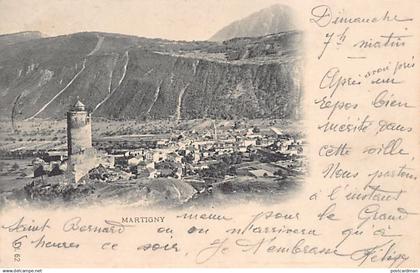 MARTIGNY
Dimanche
7h matin
Après avoir pris
repos bien
mérité dans
cette ville
Nous partons
à l'instant
même pour le Grand
Saint Bernard où on n'arrivera qu'à
6 heures ce soir Je t'embrasse
62